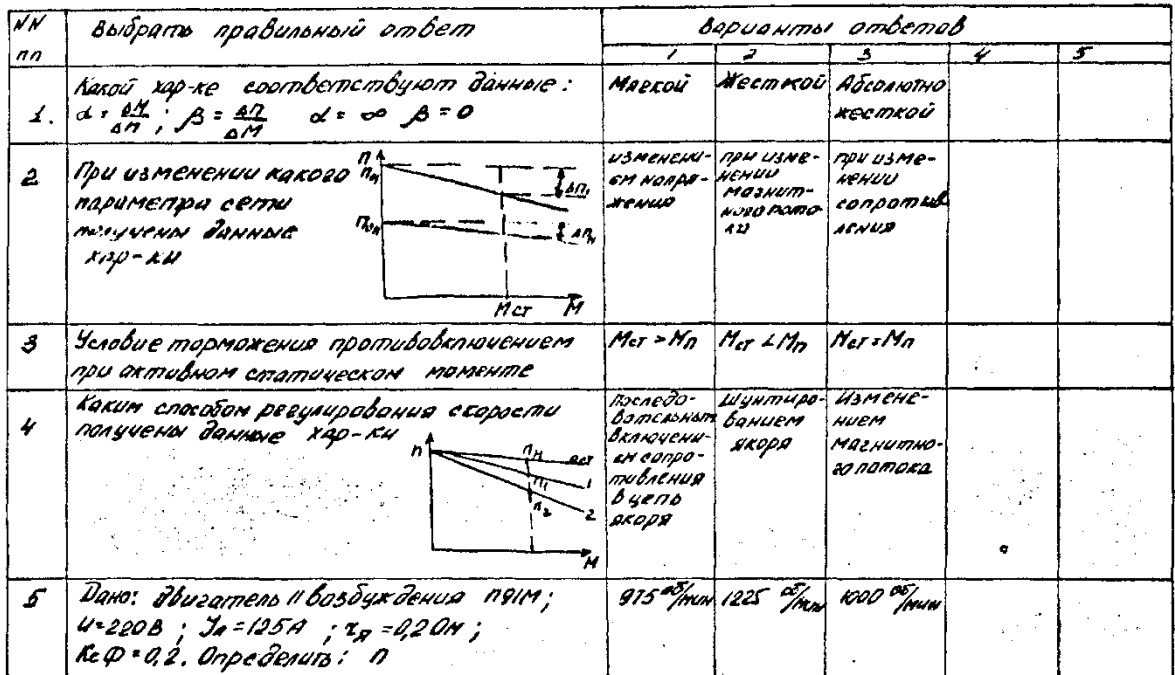 NN Выбрать правильный ответ Варианты ответов
пп 1 2 3 4 5
1. Какой хар-ке соответствуют данные:
α = ΔM/Δn; β = Δn/ΔM α = ∞ β = 0
Мягкой
Жесткой
Абсолютно
жесткой
2 При изменении какого
параметра сети
получены данные
хар-ки
n
n₀₁
Δn₁
Δnᵢᵢ
Mст M
изменени-
ем напря-
жения
при изме-
нении
магнит-
ного пото-
ка
при изме-
нении
сопротив
ления
3 Условие торможения противовключением
при активном статическом моменте
Mст > Mп
Mст < Mп
Mст = Mп
4 Каким способом регулирования скорости
получены данные хар-ки
n
nн
ест
n₁ 1
n₂ 2
M
Последо-
вательным
включени-
ем сопро-
тивления
в цепь
якоря
Шунтиро-
ванием
якоря
Измене-
нием
магнитно-
го потока
5 Дано: двигатель II возбуждения П91М;
U=220В; Jя=125А; rя=0,2Ом;
KеФ=0,2. Определить: n
975 об/мин
1225 об/мин
1000 об/мин